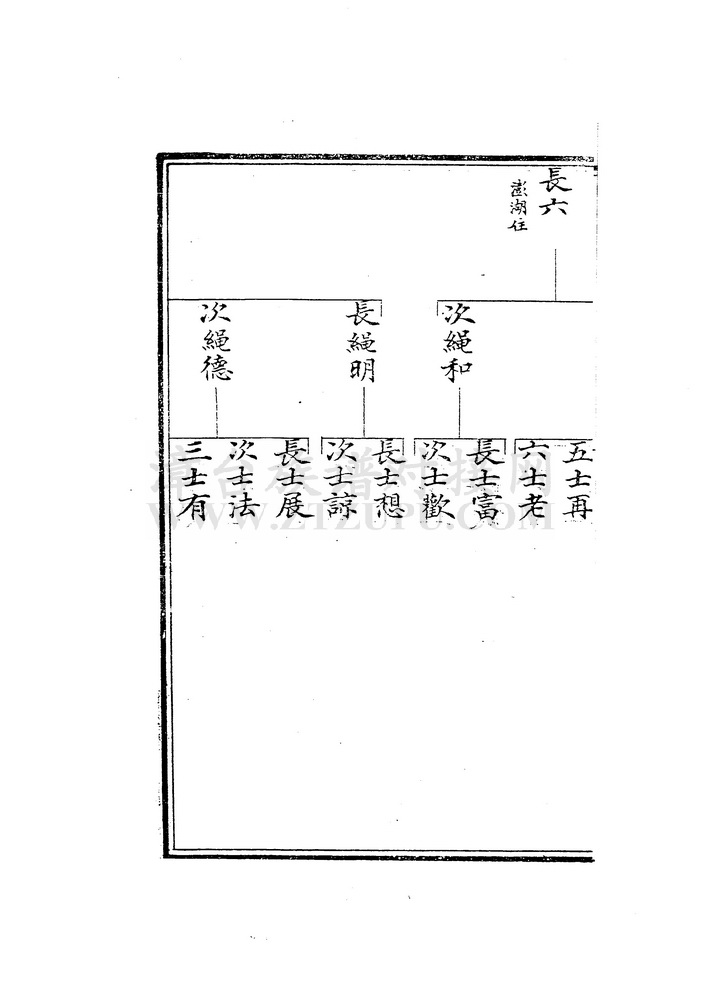 長六
澎湖住
次繩和
長繩明
次繩德
五士再
六士老
長士富
次士歡
長士想
次士諒
長士展
次士法
三士有
漳台族譜对接网
WWW.ZTZUPU.COM